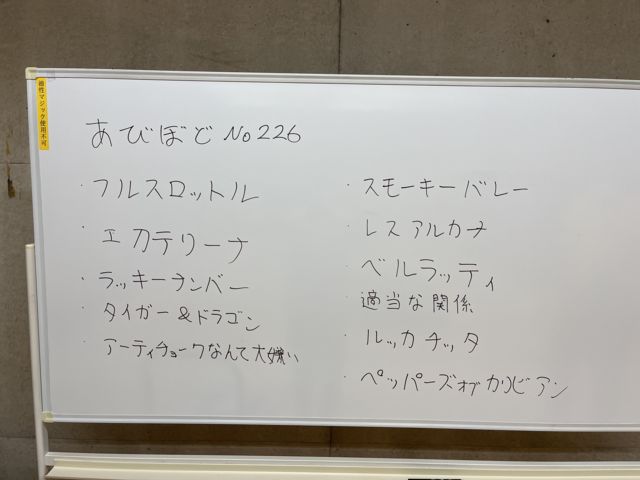 油性マジック使用不可
あびぼど No226
・フルスロットル
・エカテリーナ
・ラッキーナンバー
・タイガー&ドラゴン
・アーティチョークなんて大嫌い
・スモーキーバレー
・レスアルカナ
・ベルラッティ
・適当な関係
・ルッカチッタ
・ペッパーズオブカリビアン